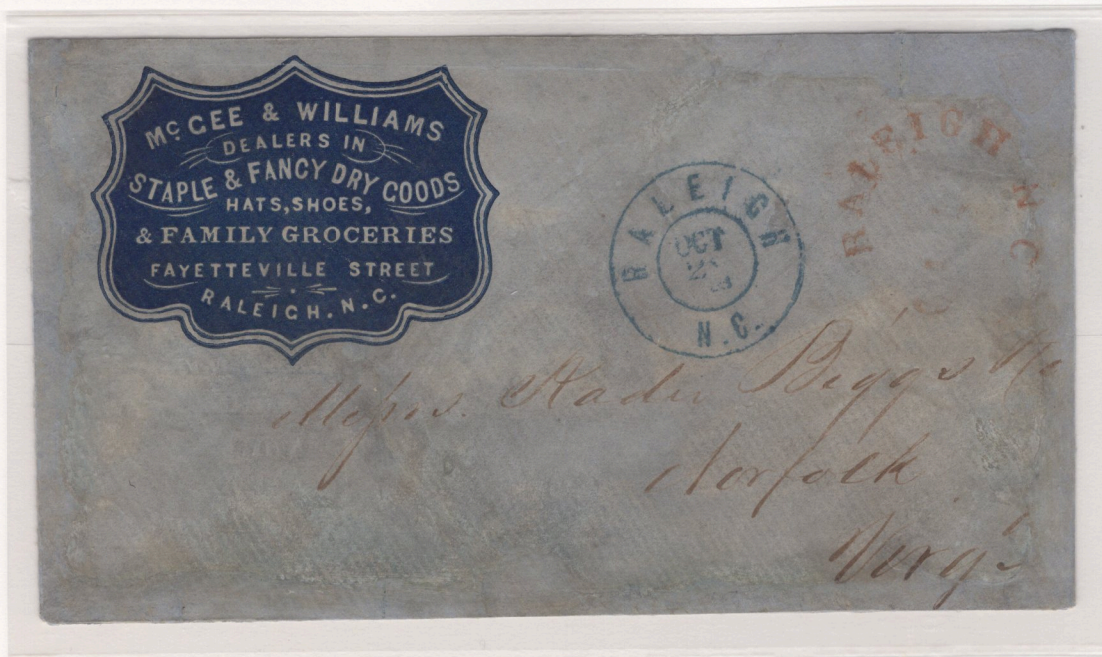 McGEE & WILLIAMS
DEALERS IN
STAPLE & FANCY DRY GOODS
HATS, SHOES,
& FAMILY GROCERIES
FAYETTEVILLE STREET
RALEIGH. N.C.
RALEIGH N C
RALEIGH
OCT
N.C.
Messrs. Kader Biggs & Co
Norfolk
Virga